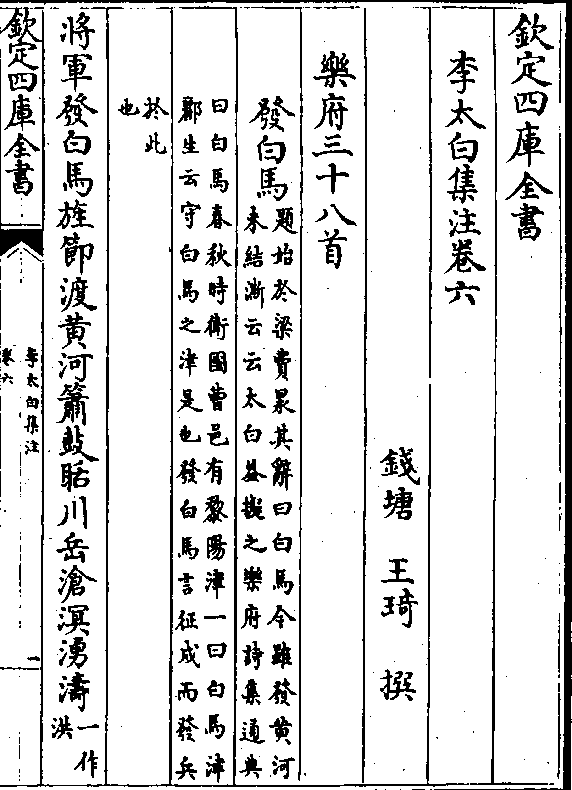 欽定四庫全書
李太白集注卷六
錢塘 王琦 撰
樂府三十八首
發白馬
題始於梁費昶其辭曰白馬今雖發黃河
未結澌云云太白益擬之樂府詩集通典
曰白馬春秋時衛國曹邑有黎陽津一曰白馬津
酈生云守白馬之津是也發白馬言征戍而發兵
於此
也
將軍發白馬旌節渡黃河簫鼓聒川岳滄溟湧濤
一作
洪
欽定四庫全書
李太白集注
卷六
一